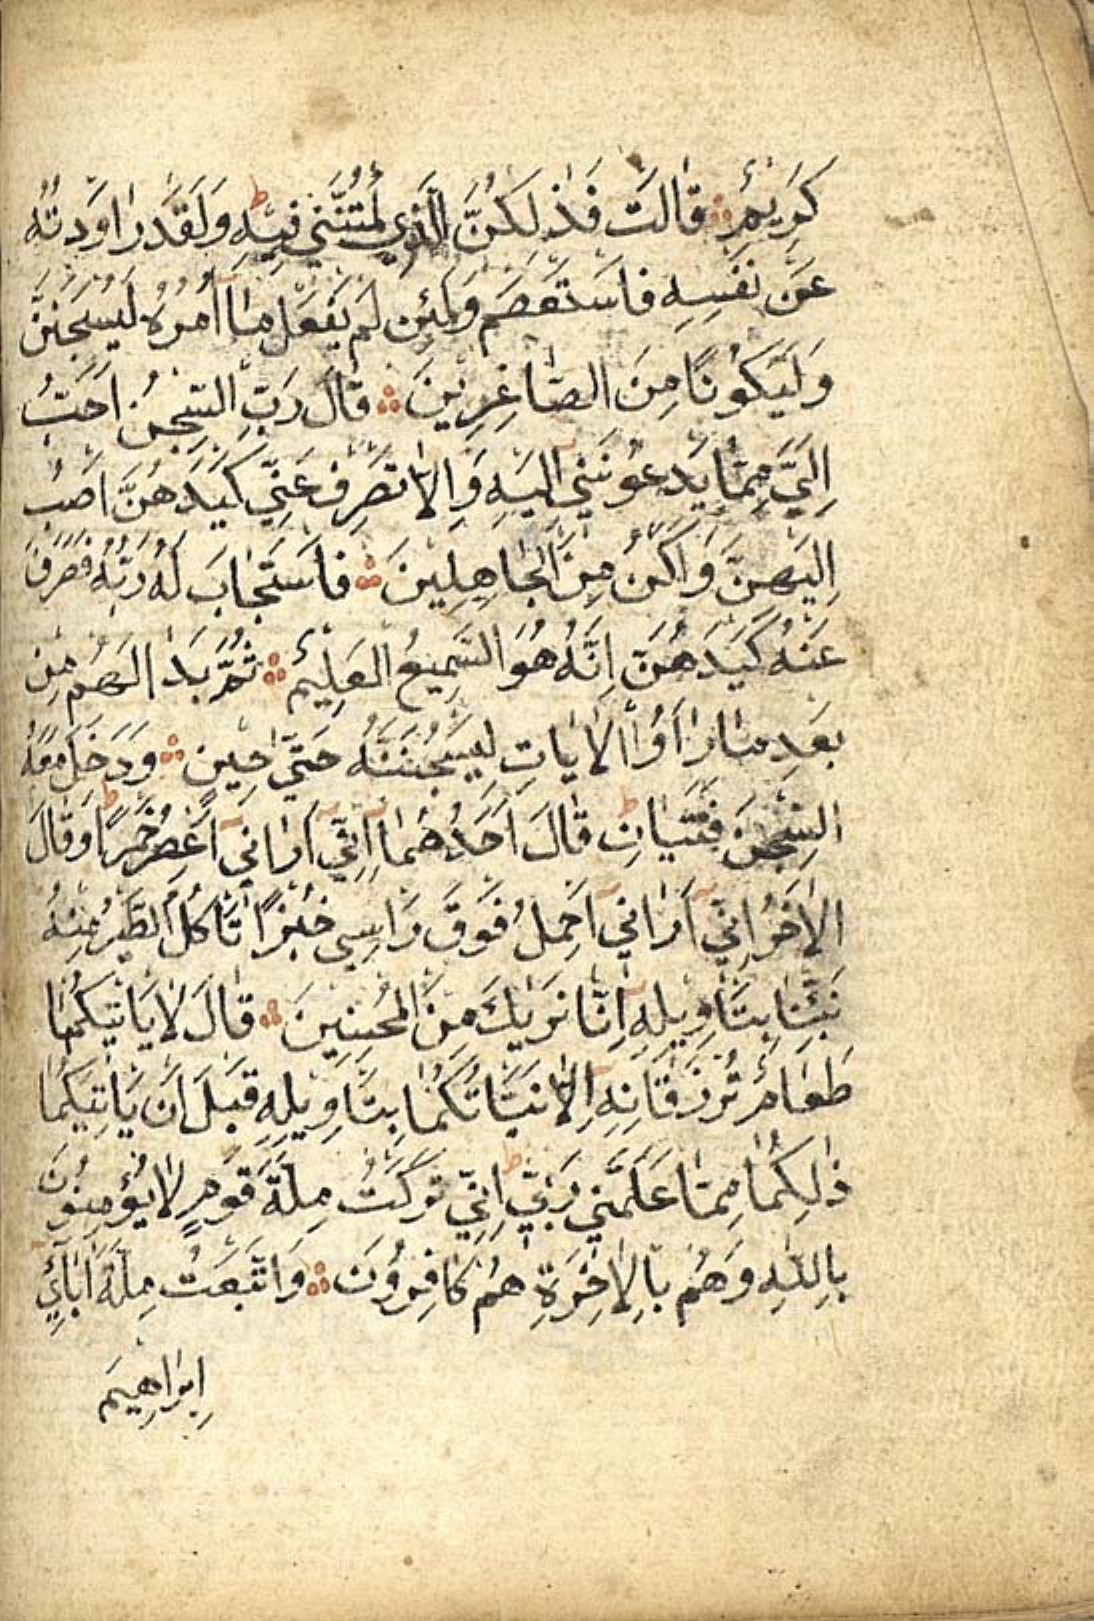 كَرِيمٌ ۞ قَالَتْ فَذٰلِكُنَّ الَّذِي لُمْتُنَّنِي فِيهِ ط وَلَقَدْ رَاوَدتُّهُ
عَنْ نَفْسِهِ فَاسْتَعْصَمَ وَلَئِنْ لَمْ يَفْعَلْ مَا اٰمُرُهُ لَيُسْجَنَنَّ
وَلَيَكُونًا مِنَ الصَّاغِرِينَ ۞ قَالَ رَبِّ السِّجْنُ اَحَبُّ
اِلَيَّ مِمَّا يَدْعُونَنِي اِلَيْهِ وَاِلَّا تَصْرِفْ عَنِّي كَيْدَهُنَّ اَصْبُ
اِلَيْهِنَّ وَاَكُنْ مِنَ الْجَاهِلِينَ ۞ فَاسْتَجَابَ لَهُ رَبُّهُ فَصَرَفَ
عَنْهُ كَيْدَهُنَّ اِنَّهُ هُوَ السَّمِيعُ الْعَلِيمُ ۞ ثُمَّ بَدَا لَهُمْ مِنْ
بَعْدِ مَا رَاَوُا الْاٰيَاتِ لَيَسْجُنُنَّهُ حَتّٰى حِينٍ ۞ وَدَخَلَ مَعَهُ
السِّجْنَ فَتَيَانِ ط قَالَ اَحَدُهُمَا اِنِّي اَرَانِي اَعْصِرُ خَمْرًا ط وَقَالَ
الْاٰخَرُ اِنِّي اَرَانِي اَحْمِلُ فَوْقَ رَاْسِي خُبْزًا تَاْكُلُ الطَّيْرُ مِنْهُ
نَبِّئْنَا بِتَاْوِيلِهِ اِنَّا نَرٰيكَ مِنَ الْمُحْسِنِينَ ۞ قَالَ لَا يَاْتِيكُمَا
طَعَامٌ تُرْزَقَانِهِ اِلَّا نَبَّاْتُكُمَا بِتَاْوِيلِهِ قَبْلَ اَنْ يَاْتِيَكُمَا
ذٰلِكُمَا مِمَّا عَلَّمَنِي رَبِّي ط اِنِّي تَرَكْتُ مِلَّةَ قَوْمٍ لَا يُؤْمِنُونَ
بِاللّٰهِ وَهُمْ بِالْاٰخِرَةِ هُمْ كَافِرُونَ ۞ وَاتَّبَعْتُ مِلَّةَ اٰبَآئِي
اِبْرَاهِيمَ